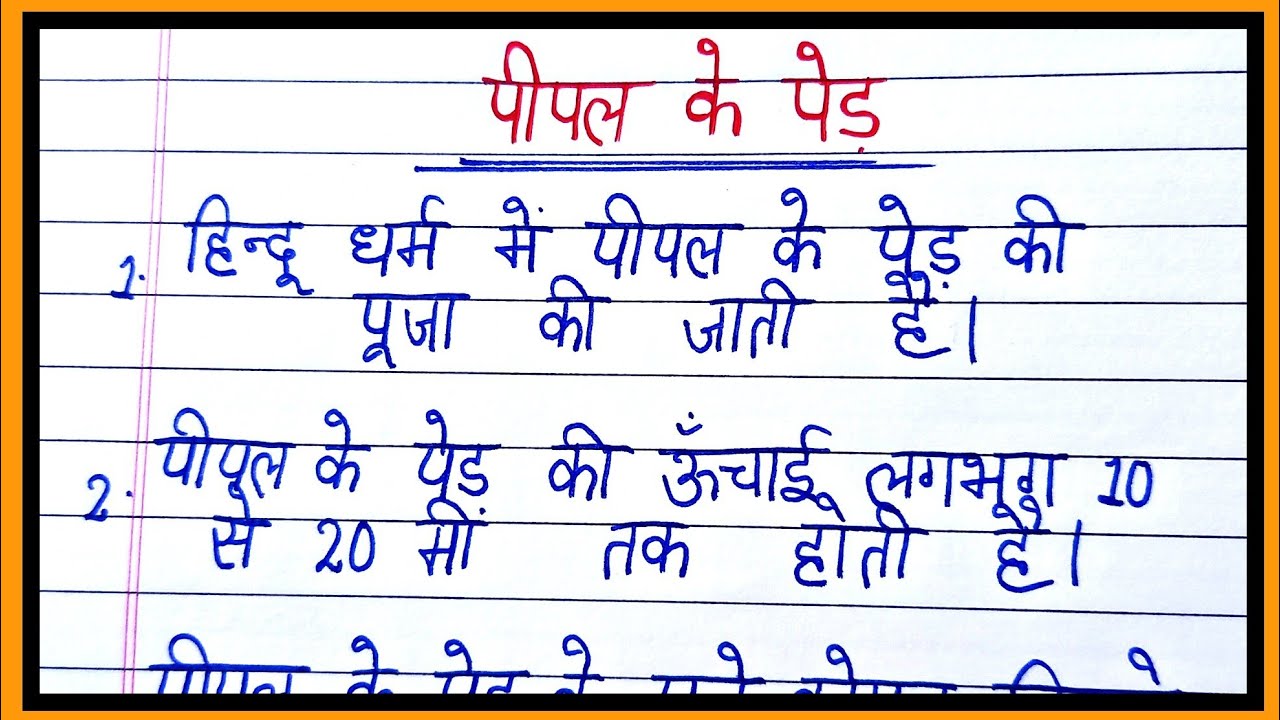 पीपल के पेड़
1. हिन्दू धर्म में पीपल के पेड़ की
पूजा की जाती है।
2. पीपल के पेड़ की ऊँचाई लगभग 10
से 20 मीं तक होती है।
पीपल के पेड़ के